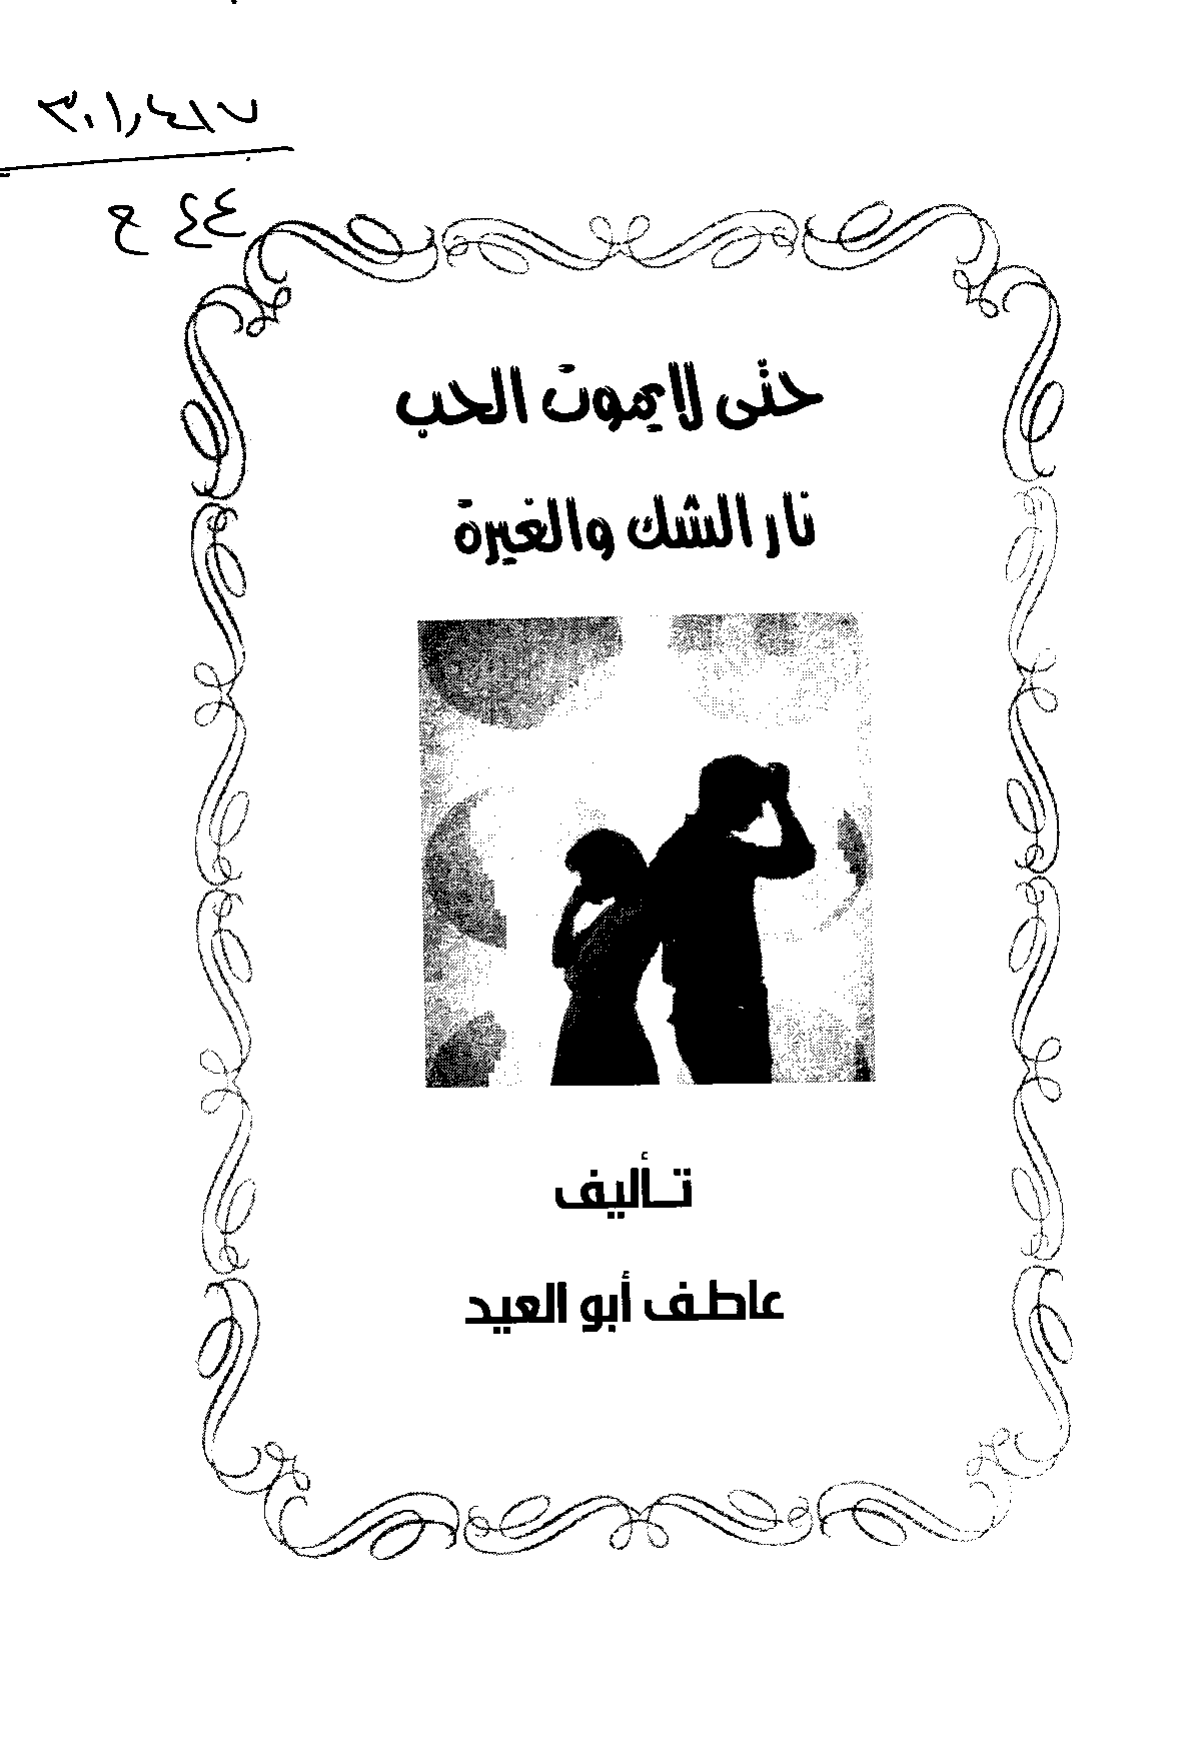 ٣٠١,٤١٧
ع ٤٤
حتى لا يموت الحب
نار الشك والغيرة
تـأليف
عاطف أبو العيد